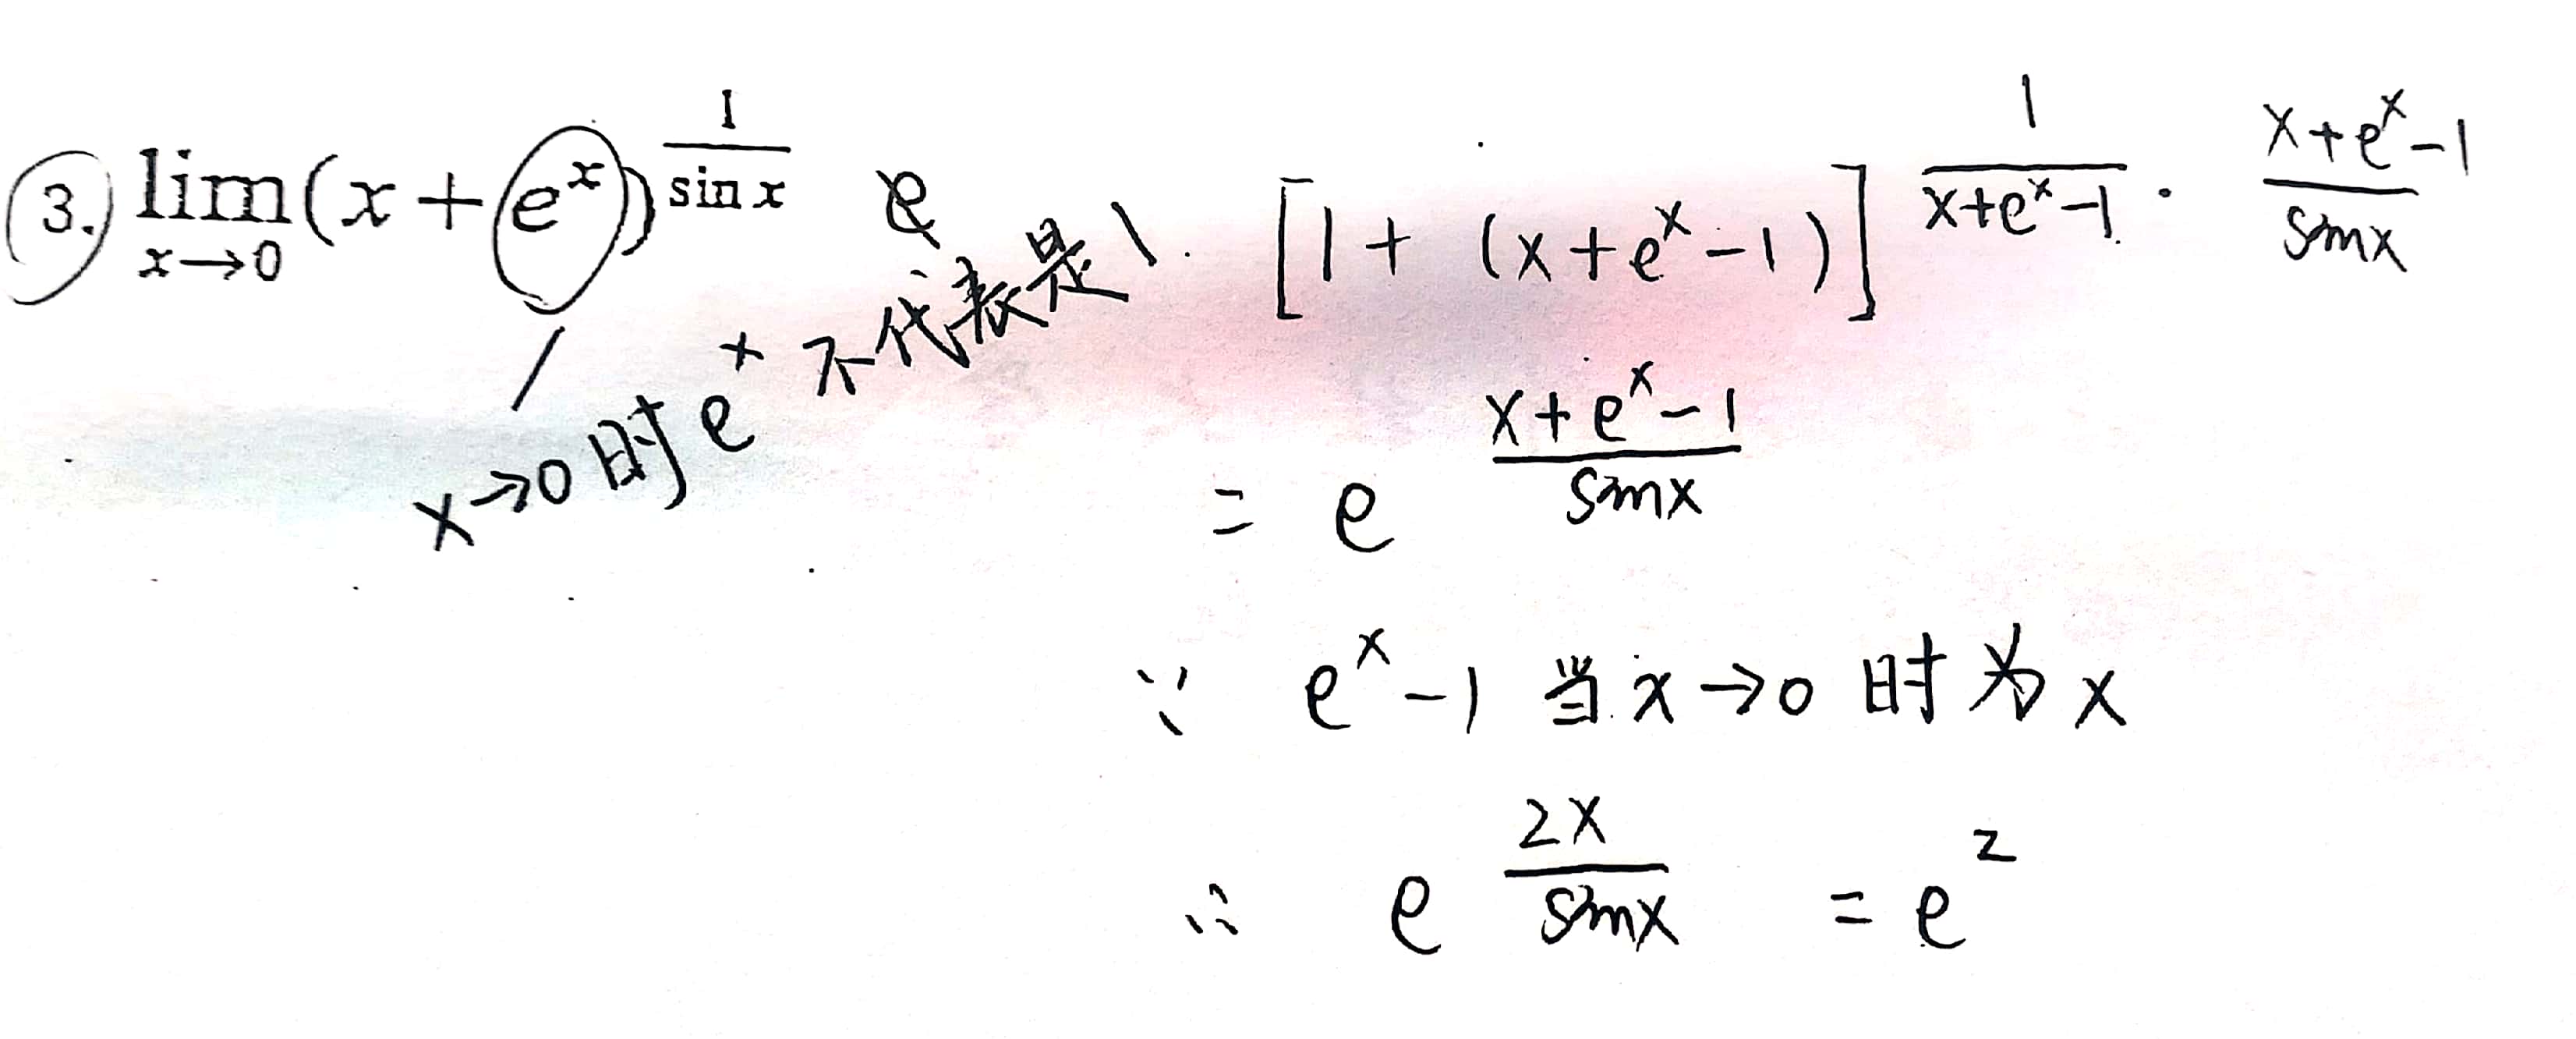 3. lim(x + e^x)^(1/sin x)
x→0
x→0时 e^x 不代表是1.
[1 + (x+e^x-1)]^(1/(x+e^x-1) · (x+e^x-1)/sinx)
= e^((x+e^x-1)/sinx)
∵ e^x-1 当 x→0 时为 x
∴ e^(2x/sinx) = e^2